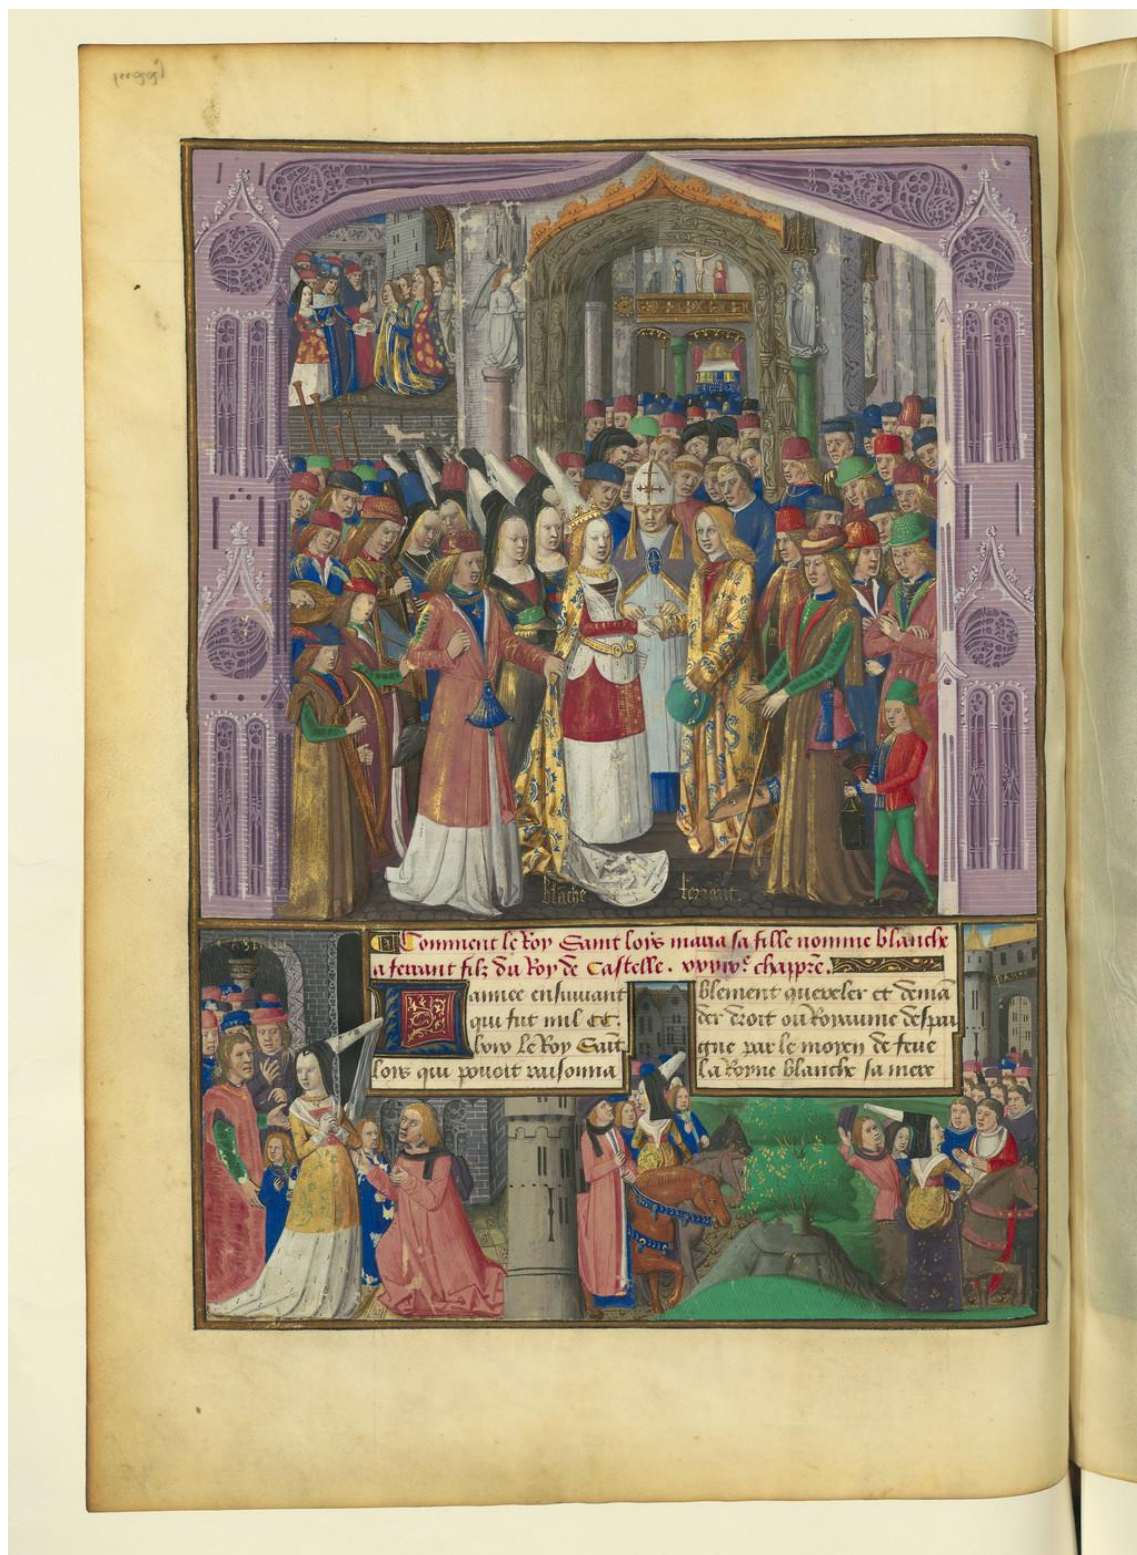 blache
ferrant.
Comment le Roy Saint loys maria sa fille nomme blanche
a ferrant filz du Roy de Castelle. chappre.
annee ensuivant
qui fut mil CC.
le Roy Sait
loys qui povoit raisonna
blement quereler et dema
der droit ou Royaume despai
gne par le moyen de feue
la Royne blanche sa mere